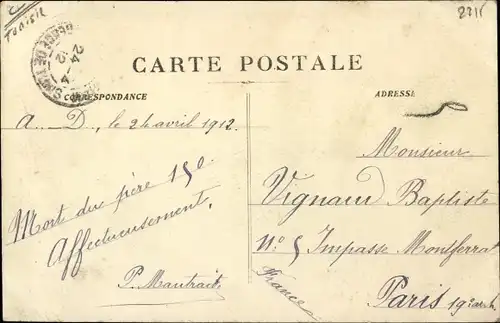 TUNISIE
2211
CARTE POSTALE
CORRESPONDANCE
ADRESSE
A._D., le 24 avril 1912.
Monsieur
Vignaud Baptiste
N.º 5 Impasse Montferrat
Paris 19e arrt
France
Mort du père 150
Affectueusement,
P. Mautrait